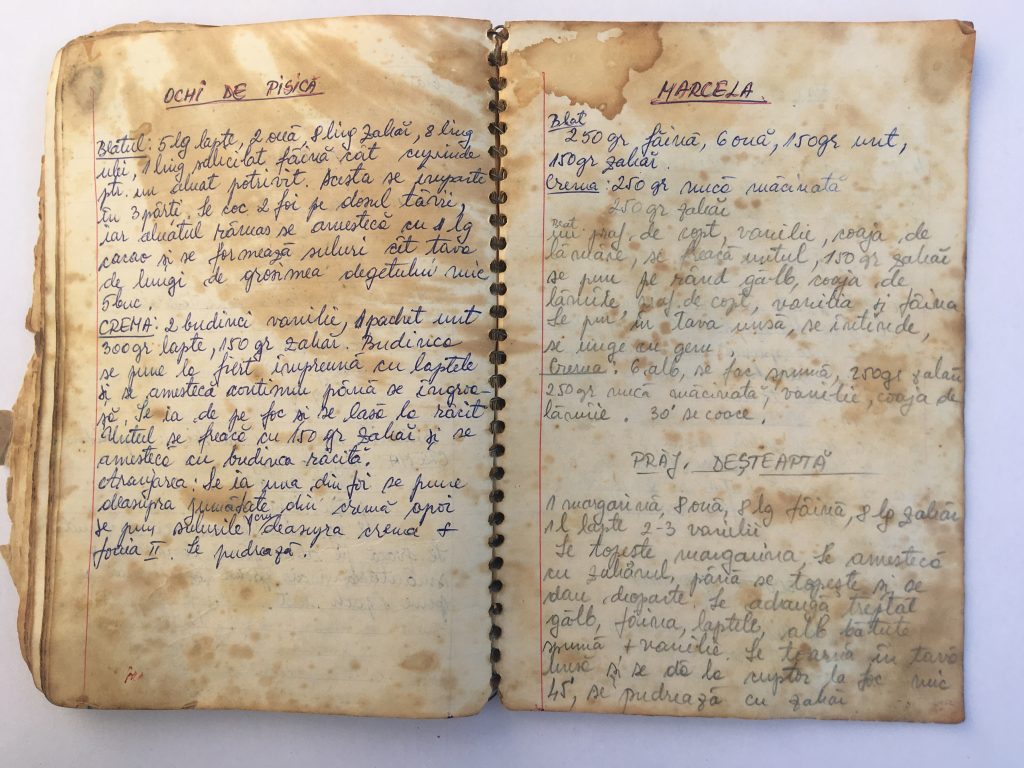 OCHI DE PISICĂ
Blatul: 5 lg lapte, 2 ouă, 8 ling zahăr, 8 ling
ulei, 1 ling salicilat făină cât cuprinde
ptr. un aluat potrivit. Acesta se imparte
în 3 părti. Se coc 2 foi pe dosul tăvii,
iar aluatul rămas se amestecă cu 1 lg
cacao și se formează suluri cît tava
de lungi de grosimea degetului mic
5 buc.
CREMA: 2 budinci vanilie, 1 pachet unt
300 gr lapte, 150 gr zahăr. Budinca
se pune la fiert împreună cu laptele
și se amestecă continuu pînă se îngroa-
șă. Se ia de pe foc și se lasă la răcit
Untul se freacă cu 150 gr zahăr și se
amestecă cu budinca răcită.
Aranjarea: Se ia una din foi se pune
deasupra jumătate din cremă apoi
se pun sulurile deasupra crema +
foaia II. Se pudrează.
MARCELA.
Blat
250 gr făină, 6 ouă, 150 gr unt,
150 gr zahăr.
Crema: 250 gr nucă măcinată
250 gr zahăr
Blat
un praf de copt, vanilie, coaja de
lămâie, se freacă untul, 150 gr zahăr
se pun pe rând gălb, coaja de
lămîie, praf de copt, vanilia și făina
Se pun în tava unsă, se intinde,
se unge cu gem.
Crema: 6 alb, se fac spumă, 250 gr zahăr
250 gr nucă măcinată, vanilie, coaja de
lămîie. 30' se coace.
PRĂJ. DEȘTEAPTĂ
1 margarină, 8 ouă, 8 lg făină, 8 lg zahăr
1 l lapte 2-3 vanilii
Se topește margarina, Se amestecă
cu zahărul, pînă se topește și se
dau deoparte. Se adaugă treptat
gălb, făina, laptele, alb bătute
spumă + vanilie. Se toarnă în tavă
unsă și se dă la cuptor la foc mic
45', se pudrează cu zahăr